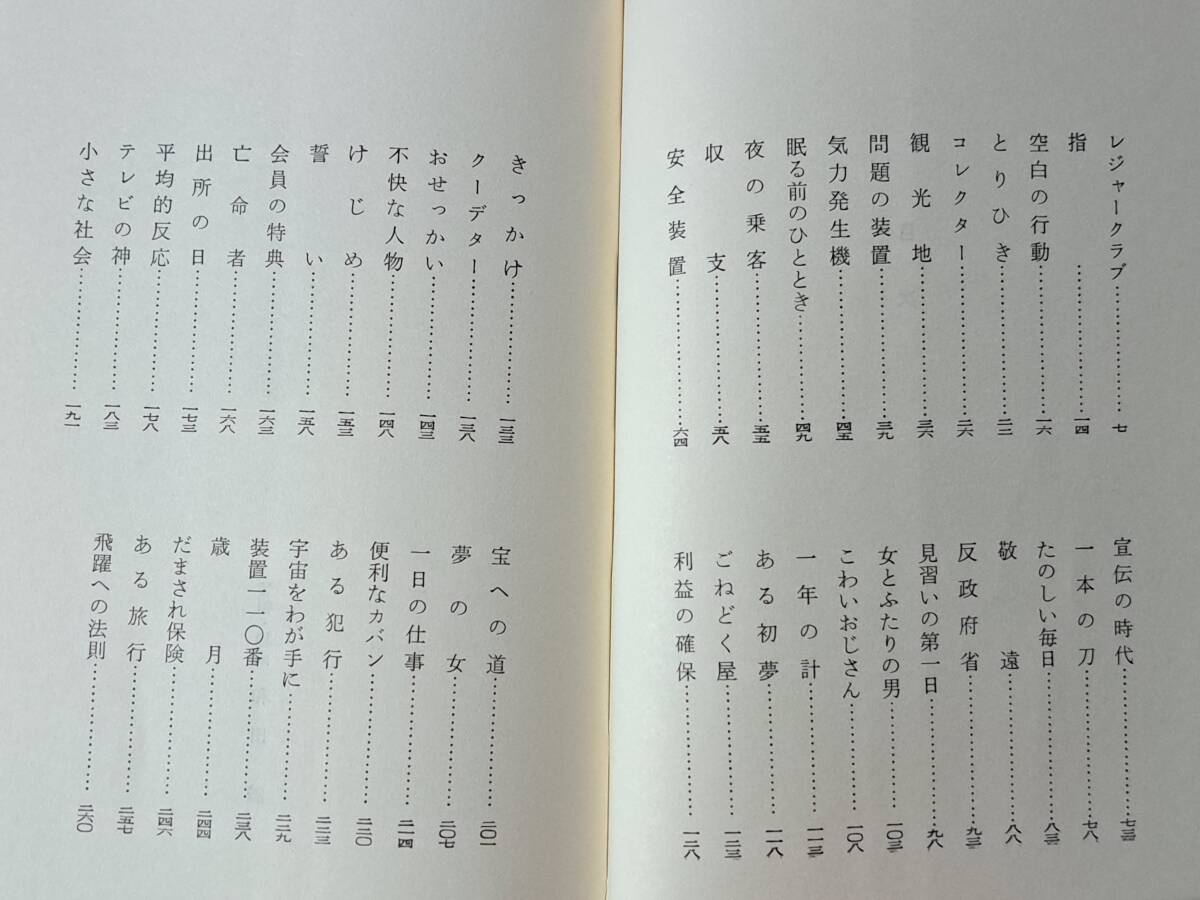 レジャークラブ…………七
指…………一四
空白の行動…………一六
とりひき…………二二
コレクター…………二六
観光地…………三六
問題の装置…………三九
気力発生機…………四五
眠る前のひととき…………四九
夜の乗客…………五五
収支…………五八
安全装置…………六四
宣伝の時代…………七三
一本の刀…………七八
たのしい毎日…………八三
敬遠…………八八
反政府省…………九三
見習いの第一日…………九八
女とふたりの男…………一〇三
こわいおじさん…………一〇八
一年の計…………一一三
ある初夢…………一一八
ごねどく屋…………一二三
利益の確保…………一二八
きっかけ…………一三三
クーデター…………一三八
おせっかい…………一四三
不快な人物…………一四八
けじめ…………一五三
誓い…………一五八
会員の特典…………一六三
亡命者…………一六八
出所の日…………一七三
平均的反応…………一七八
テレビの神…………一八三
小さな社会…………一九一
宝への道…………二〇一
夢の女…………二〇七
一日の仕事…………二一四
便利なカバン…………二二〇
ある犯行…………二二三
宇宙をわが手に…………二二九
装置一一〇番…………二三八
歳月…………二四四
だまされ保険…………二四六
ある旅行…………二五七
飛躍への法則…………二六〇